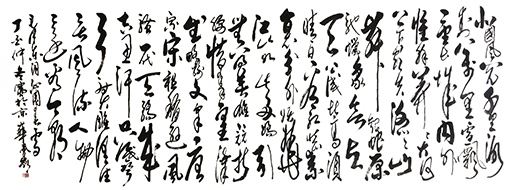 北国风光千里冰
封万里雪飘
望长城内外
惟余莽莽大河
上下顿失滔滔山
舞银蛇原
驰蜡象欲与
天公试比高须
晴日看红装素
裹分外妖娆
江山如此多娇引
无数英雄竞折
腰惜秦皇汉
武略输文采唐
宗宋祖稍逊风
骚一代天骄成
吉思汗只识弯
弓射大雕俱往
矣数风流人物
还看今朝
毛泽东词沁园春雪
丁亥仲冬于京华